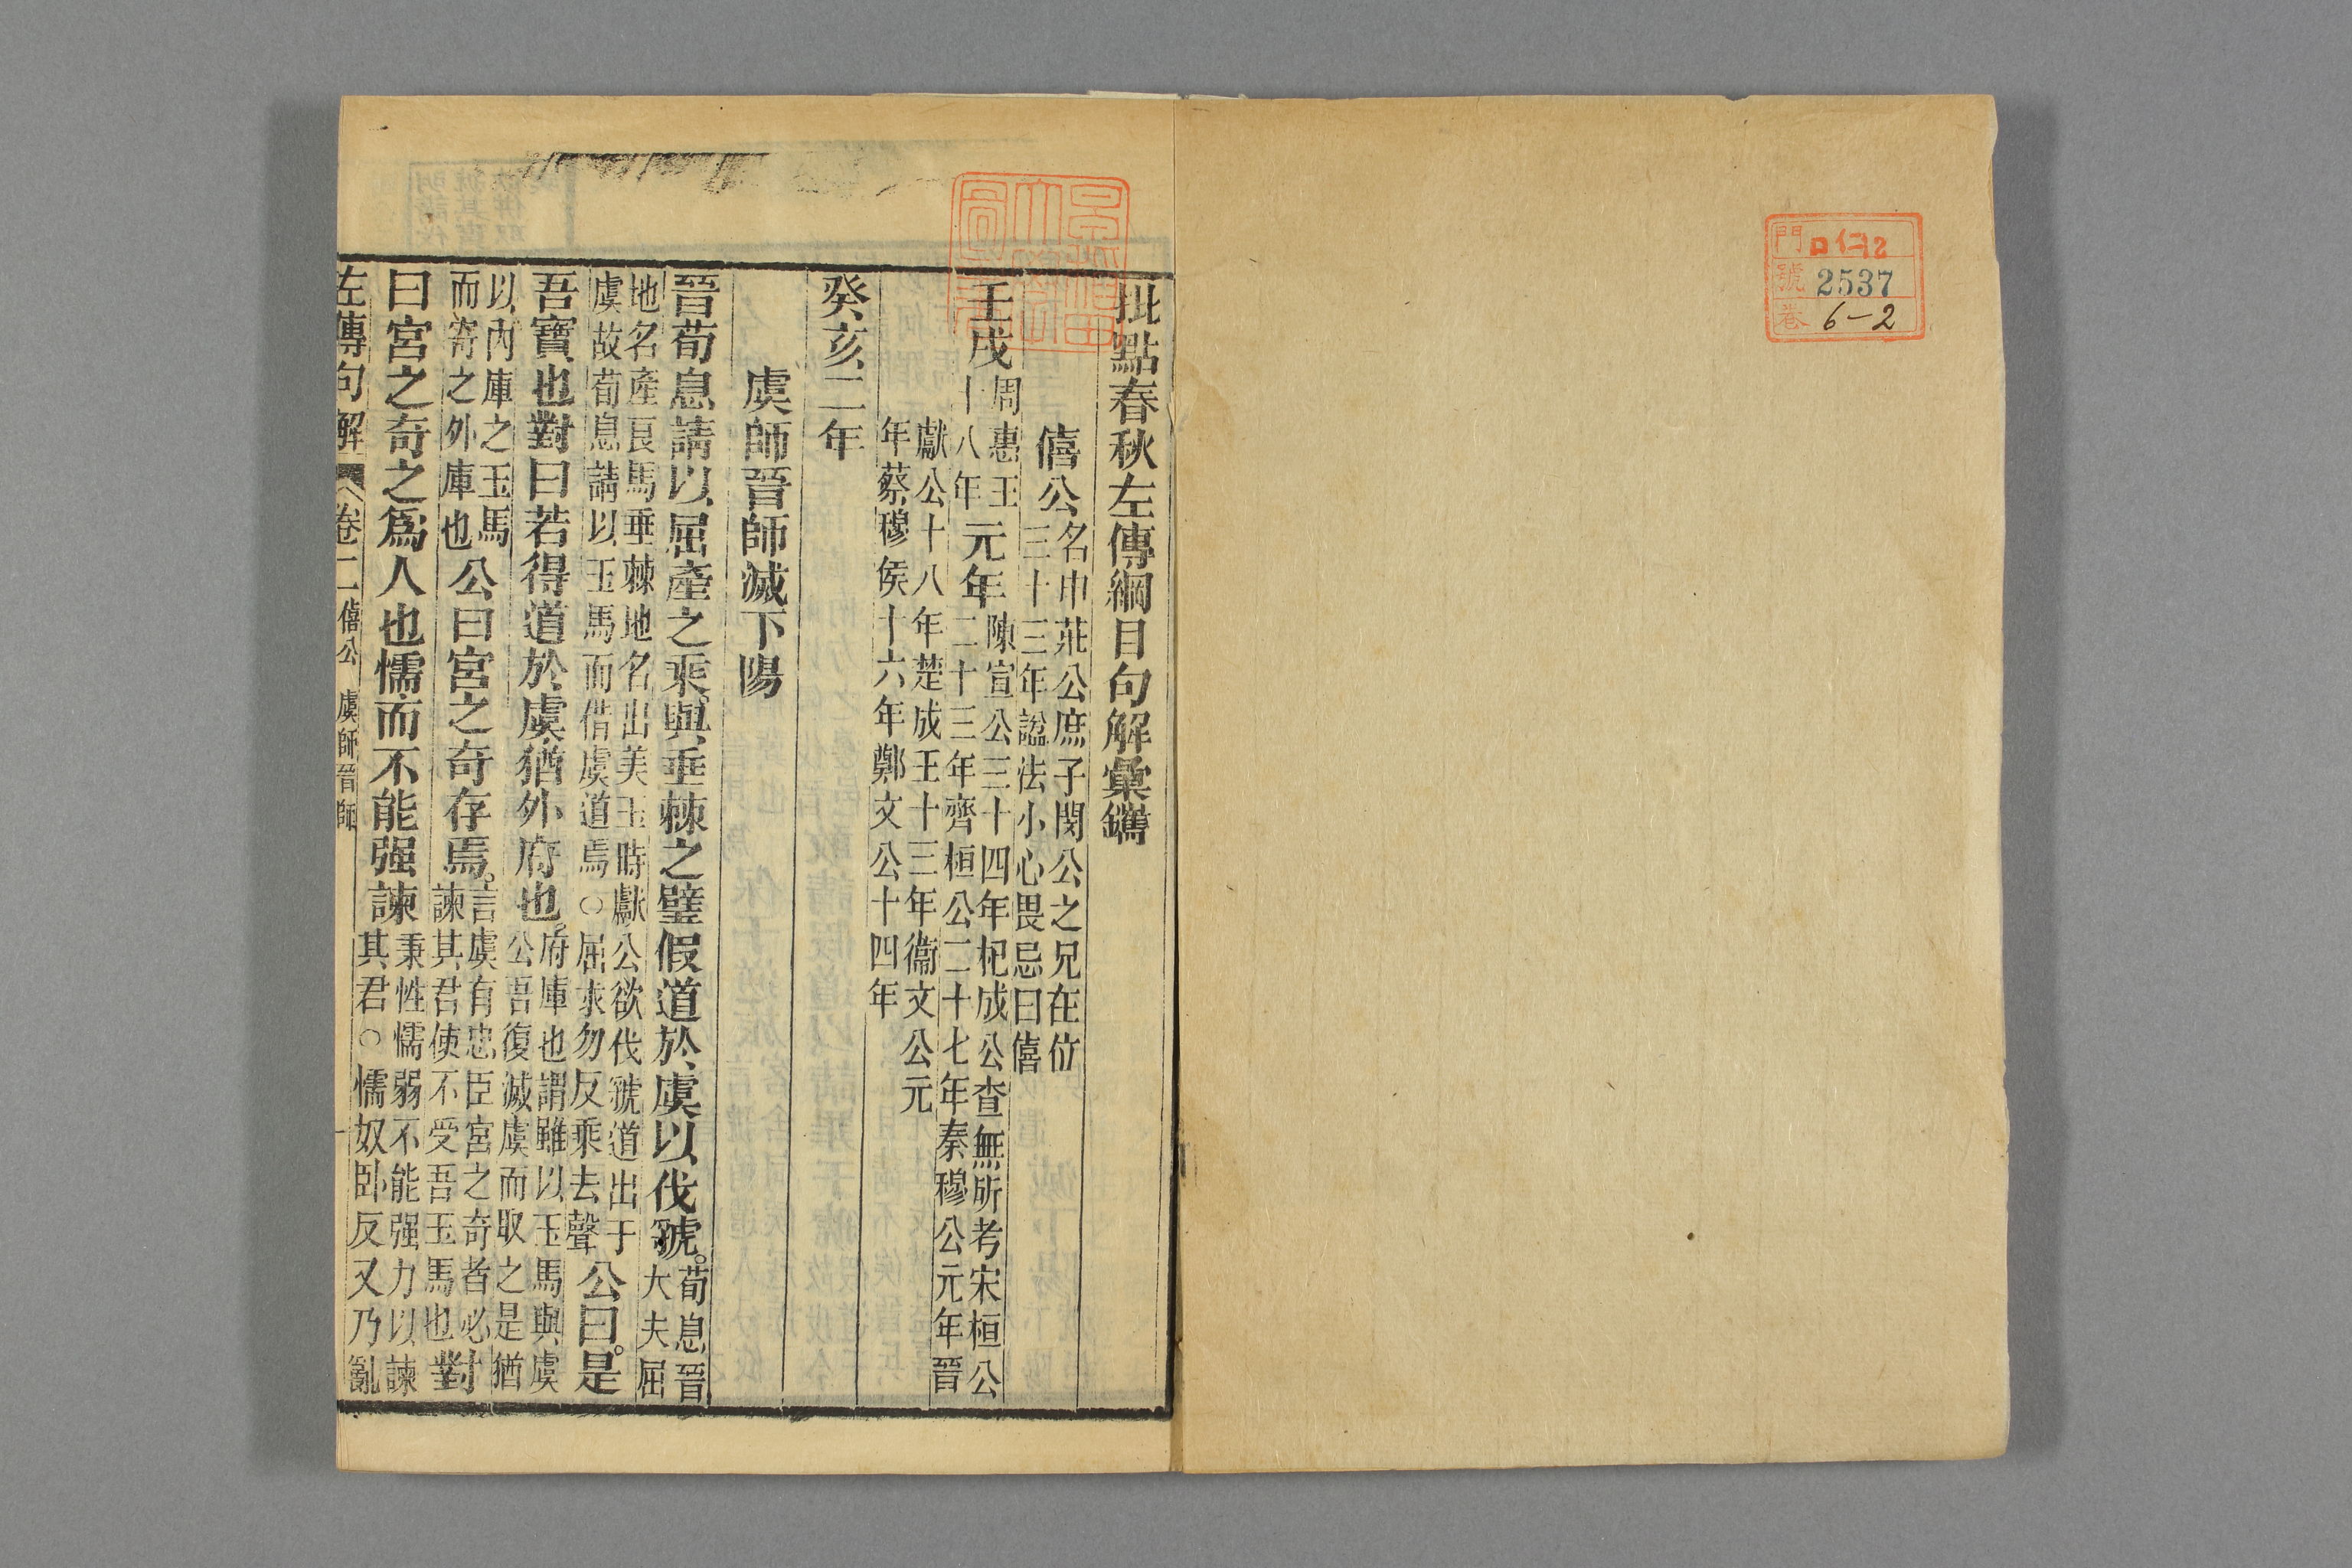 門 口仁12
號 2537
卷 6-2
批點春秋左傳綱目句解彙鐫
僖公 名申莊公庶子閔公之兄在位
三十三年諡法小心畏忌曰僖
壬戌 周惠王
十八年 元年 陳宣公三十四年杞成公查無所考宋桓公
二十三年齊桓公二十七年秦穆公元年晉
獻公十八年楚成王十三年衞文公元
年蔡穆侯十六年鄭文公十四年
癸亥二年
虞師晉師滅下陽
晉荀息請以屈產之乘與垂棘之璧假道於虞以伐虢。荀息晉
大夫屈
地名產良馬垂棘地名出美玉時獻公欲伐虢道出于
虞故荀息請以玉馬而借虞道焉○屈求勿反乘去聲 公曰。是
吾寶也對曰若得道於虞猶外府也。府庫也謂雖以玉馬與虞
公吾復滅虞而取之是猶
以內庫之玉馬
而寄之外庫也 公曰宮之奇存焉。言虞有忠臣宮之奇者必
諫其君使不受吾玉馬也 對
曰宮之奇之爲人也懦而不能强諫 秉性懦弱不能强力以諫
其君○懦奴卧反又乃亂
左傳句解 卷二 僖公 虞師晉師 一